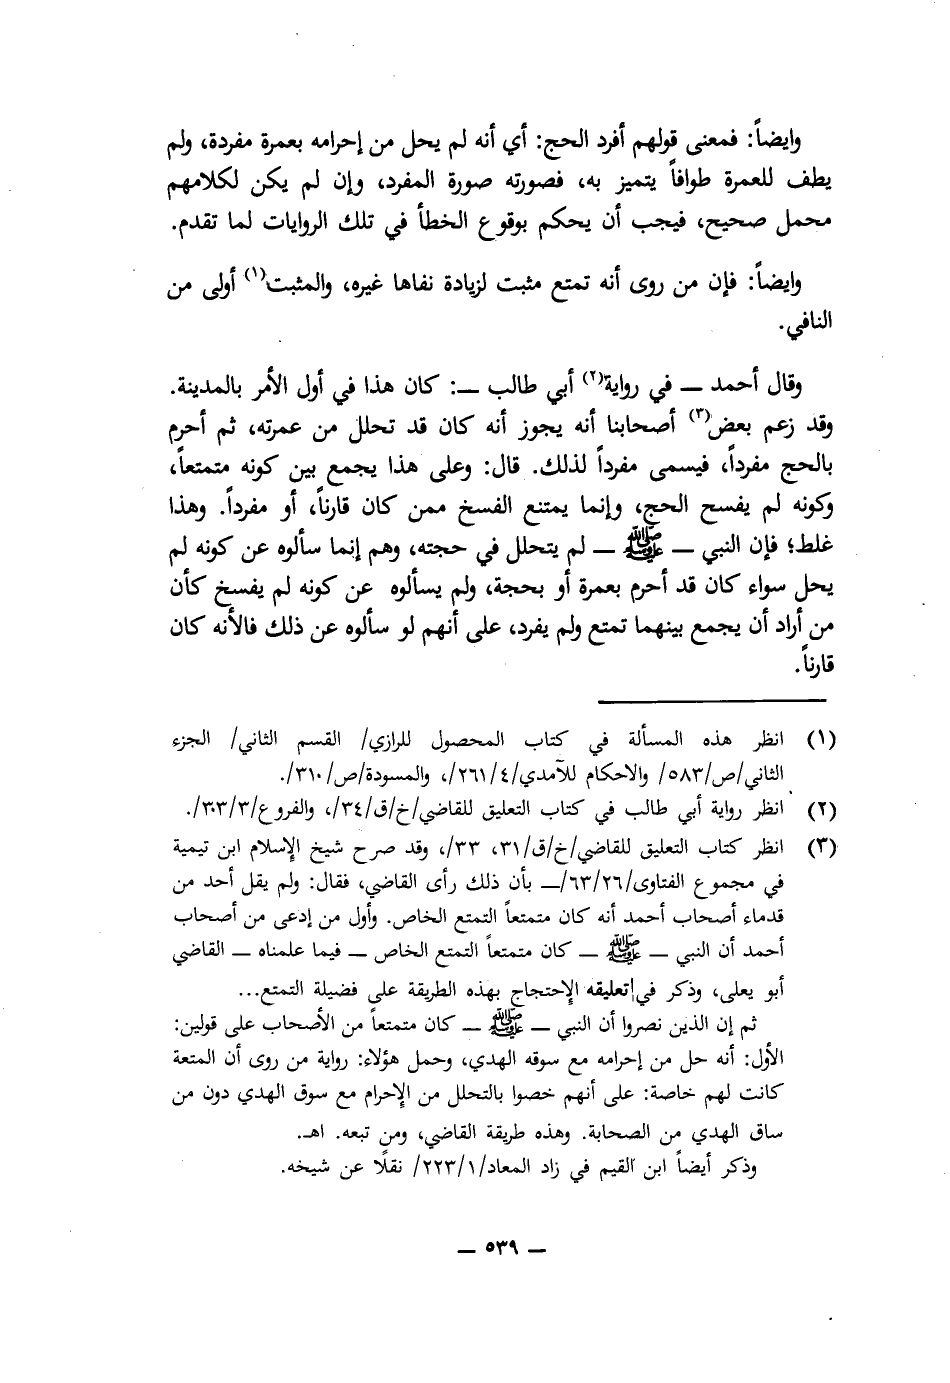 وايضاً: فمعنى قولهم أفرد الحج: أي أنه لم يحل من إحرامه بعمرة مفردة، ولم
يطف للعمرة طوافاً يتميز به، فصورته صورة المفرد، وإن لم يكن لكلامهم
محمل صحيح، فيجب أن يحكم بوقوع الخطأ في تلك الروايات لما تقدم.
وايضاً: فإن من روى أنه تمتع مثبت لزيادة نفاها غيره، والمثبت(١) أولى من
النافي.
وقال أحمد ـ في رواية(٢) أبي طالب ـ: كان هذا في أول الأمر بالمدينة.
وقد زعم بعض(٣) أصحابنا أنه يجوز أنه كان قد تحلل من عمرته، ثم أحرم
بالحج مفرداً، فيسمى مفرداً لذلك. قال: وعلى هذا يجمع بين كونه متمتعاً،
وكونه لم يفسح الحج، وإنما يمتنع الفسخ ممن كان قارناً، أو مفرداً. وهذا
غلط؛ فإن النبي ـ ﷺ ـ لم يتحلل في حجته، وهم إنما سألوه عن كونه لم
يحل سواء كان قد أحرم بعمرة أو بحجة، ولم يسألوه عن كونه لم يفسخ كأن
من أراد أن يجمع بينهما تمتع ولم يفرد، على أنهم لو سألوه عن ذلك فالأنه كان
قارناً.
(١) انظر هذه المسألة في كتاب المحصول للرازي/ القسم الثاني/ الجزء
الثاني/ص/٥٨٣/ والاحكام للآمدي/٢٦١/٤/، والمسودة/ص/٣١٠/.
(٢) انظر رواية أبي طالب في كتاب التعليق للقاضي/خ/ق/٣٤/، والفروع/٣٠٣/٣/.
(٣) انظر كتاب التعليق للقاضي/خ/ق/٣١، ٣٣/، وقد صرح شيخ الإسلام ابن تيمية
في مجموع الفتاوى/٦٣/٢٦/ـ بأن ذلك رأى القاضي، فقال: ولم يقل أحد من
قدماء أصحاب أحمد أنه كان متمتعاً التمتع الخاص. وأول من إدعى من أصحاب
أحمد أن النبي ـ ﷺ ـ كان متمتعاً التمتع الخاص ـ فيما علمناه ـ القاضي
أبو يعلى، وذكر في تعليقه الإحتجاج بهذه الطريقة على فضيلة التمتع...
ثم إن الذين نصروا أن النبي ـ ﷺ ـ كان متمتعاً من الأصحاب على قولين:
الأول: أنه حل من إحرامه مع سوقه الهدي، وحمل هؤلاء: رواية من روى أن المتعة
كانت لهم خاصة: على أنهم خصوا بالتحلل من الإحرام مع سوق الهدي دون من
ساق الهدي من الصحابة. وهذه طريقة القاضي، ومن تبعه. اهـ.
وذكر أيضاً ابن القيم في زاد المعاد/٢٢٣/١/ نقلًا عن شيخه.
ـ ٥٣٩ ـ